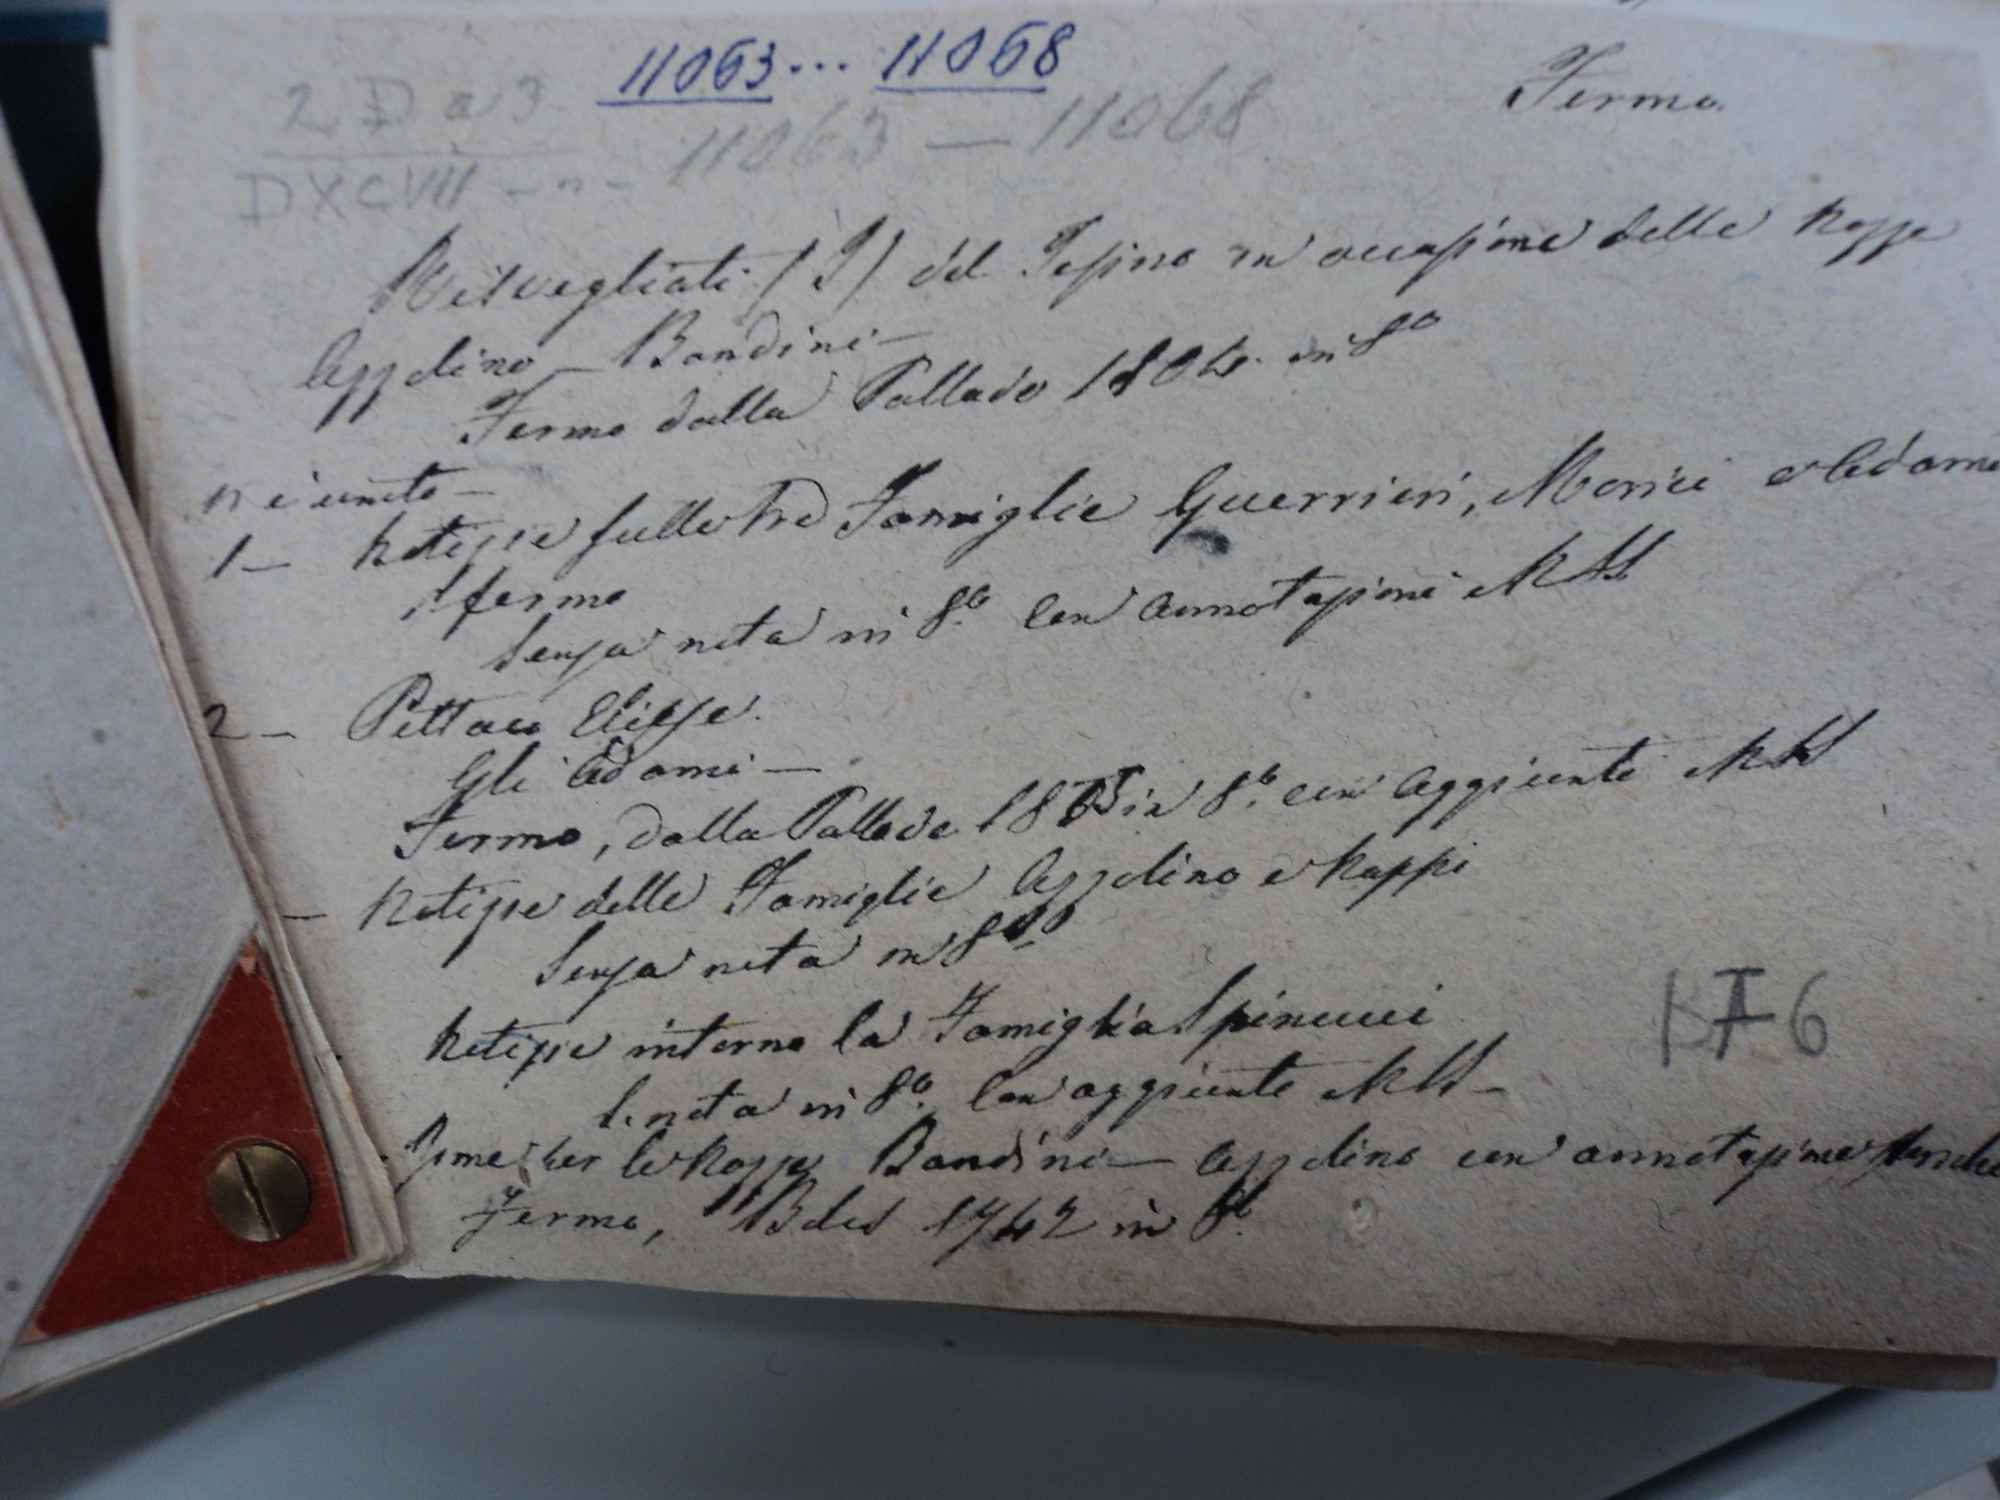 11063... 11068
Fermo.
2 D a 3
DXCVII - n - 11063 — 11068
Risvegliati (I) del Tesino in occasione delle Nozze
Azzolino - Bandini -
Fermo dalla Pallade 1804. in 8o
Ri unito -
1 - Notizie sulle tre Famiglie Guerrieri, Morici e Adami
di fermo
Senza nota in 8o. Con annotazioni MSS
2 - Pettaci Elisse.
Gli Adami -
Fermo, dalla Pallade in 8o. con aggiunte MSS
- Notizie delle Famiglie Azzolino e Nappi
Senza nota in 8o
Notizie intorno la Famiglia Spinucci
S. nota in 8o. Con aggiunte MSS -
BF6
Rime per le Nozze Bandini - Azzolino con annotazione
Fermo, Bolis 1742 in 8o.